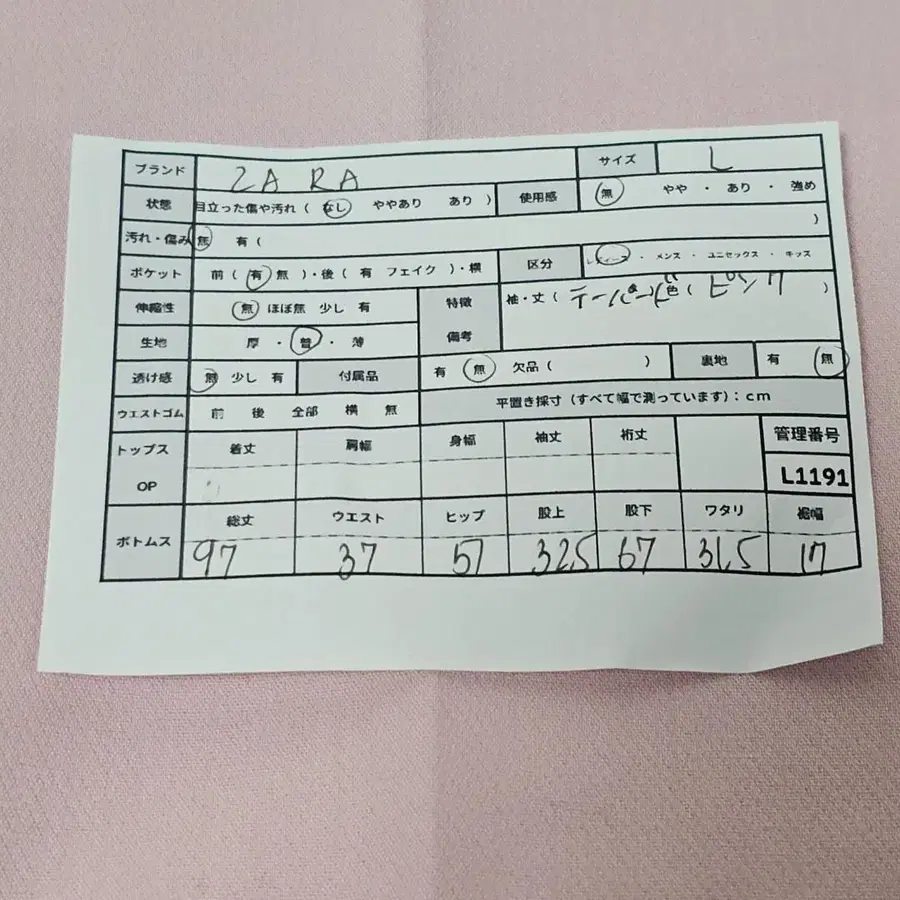 ブランド ZARA サイズ L
状態 目立った傷や汚れ ( なし ややあり あり ) 使用感 無 やや ・ あり ・ 強め
汚れ・傷み 無 有 ( )
ポケット 前 ( 有 無 ) ・後 ( 有 フェイク ) ・横 区分 レディース ・ メンズ ・ ユニセックス ・ キッズ
伸縮性 無 ほぼ無 少し 有 特徴 備考 袖・丈 ( テーパード ) 色 ( ピンク )
生地 厚 ・ 普 ・ 薄
透け感 無 少し 有 付属品 有 無 欠品 ( ) 裏地 有 無
ウエストゴム 前 後 全部 横 無 平置き採寸 (すべて幅で測っています) : cm
トップス OP 着丈 肩幅 身幅 袖丈 裄丈 管理番号
L1191
ボトムス 総丈 ウエスト ヒップ 股上 股下 ワタリ 裾幅
97 37 57 32.5 67 31.5 17